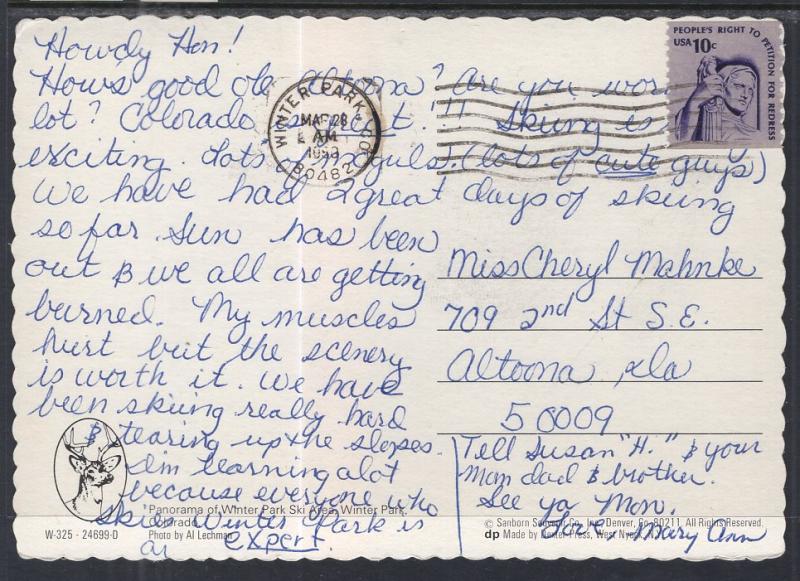 Howdy Hon!
How's good ole Altoona? Are you wor
lot? Colorado is great!!! Skiing is
exciting. Lots of moguls. (lots of cute guys)
We have had 2 great days of skiing
so far. Sun has been
out & we all are getting
burned. My muscles
hurt but the scenery
is worth it. We have
been skiing really hard
& tearing up the slopes.
I'm learning alot
because everyone who
skis Winter Park is
an expert
PEOPLE'S RIGHT TO PETITION FOR REDRESS
USA 10c
WINTER PARK, CO.
MAR 28
AM
80482
Miss Cheryl Mahnke
709 2nd St S.E.
Altoona, Ia
50009
Tell Susan "H." & your
Mom dad & brother.
See ya Mon.
Love, Mary Ann
Panorama of Winter Park Ski Area, Winter Park,
Colorado.
Photo by Al Lechman
W-325 - 24699-D
© Sanborn Souvenir Co., Inc., Denver, Co. 80211. All Rights Reserved.
dp Made by Dexter Press, West Nyack, N.Y.